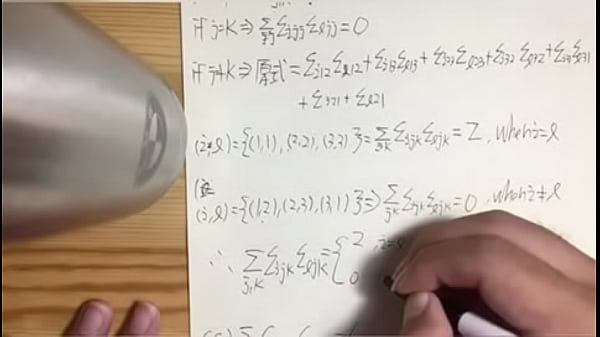 if j=K ⇒ Σ Σijj Σljj = 0
if j≠K ⇒ 原式 = Σi12 Σl12 + Σi13 Σl13 + Σi23 Σl23 + Σi32 Σl32 + Σi31 Σl31
+ Σi21 + Σl21
(i,l) = {(1,1), (2,2), (3,3)} = Σjk Σijk Σljk = 2, when i=l
(i,l) = {(1,2), (2,3), (3,1)} ⇒ Σjk Σijk Σljk = 0, when i≠l
∴ Σj,K Σijk Σljk = { 2, i=l
0